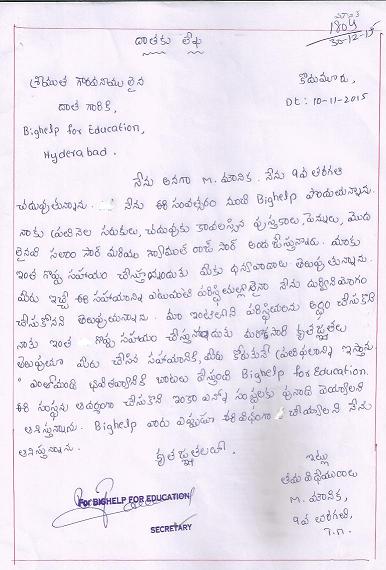 మౌనిక
1804
30-12-15
దాతకు లేఖ
శ్రీయుత గౌరవనీయులైన
కొడుమూరు,
దాత గారికి,
Dt: 10-11-2015
Bighelp for Education,
Hyderabad.
నేను అనగా M. మౌనిక. నేను 9వ తరగతి
చదువుతున్నాను. నేను ఈ సంవత్సరం నుండి Bighelp పొందుతున్నాను.
నాకు ప్రతినెల సరుకులు, చదువుకు కావలసిన పుస్తకాలు, పెన్నులు, మొద
లైనవి సలాం సార్ మరియు సార్ అందజేస్తున్నారు. మాకు
ఇంత గొప్ప సహాయం చేస్తున్నందుకు మీకు ధన్యవాదాలు తెలుపుతున్నాను.
మీరు ఇచ్చే ఈ సహాయాన్ని ఎటువంటి పరిస్థితుల్లోనైనా నేను దుర్వినియోగం
చేసుకోనని తెలుపుతున్నాను. మా ఇంటిలోని పరిస్థితులను అర్థం చేసుకొని
నాకు ఇంత గొప్ప సహాయం చేస్తున్నందుకు మరొక్కసారి కృతజ్ఞతలు
తెలుపుతూ మీరు చేసిన సహాయానికి, మీరు కోరుకునే ప్రతిఫలాన్ని ఇస్తాను
" ఎంతోమంది భవిష్యత్తుకి బాటలు వేస్తుంది Bighelp for Education.
ఈ సంస్థను ఆదర్శంగా చేసుకొని ఇంకా ఎన్నో సంస్థలకు పునాది వెయ్యాలని
ఆశిస్తున్నాను. Bighelp వారు ఎల్లప్పుడూ ఈ విధంగా చెయ్యాలని నేను
ఆశిస్తున్నాను.
కృతజ్ఞతలతో.
ఇట్లు
తమ విధేయురాలు
M. మౌనిక,
9వ తరగతి,
For BIGHELP FOR EDUCATION
SECRETARY